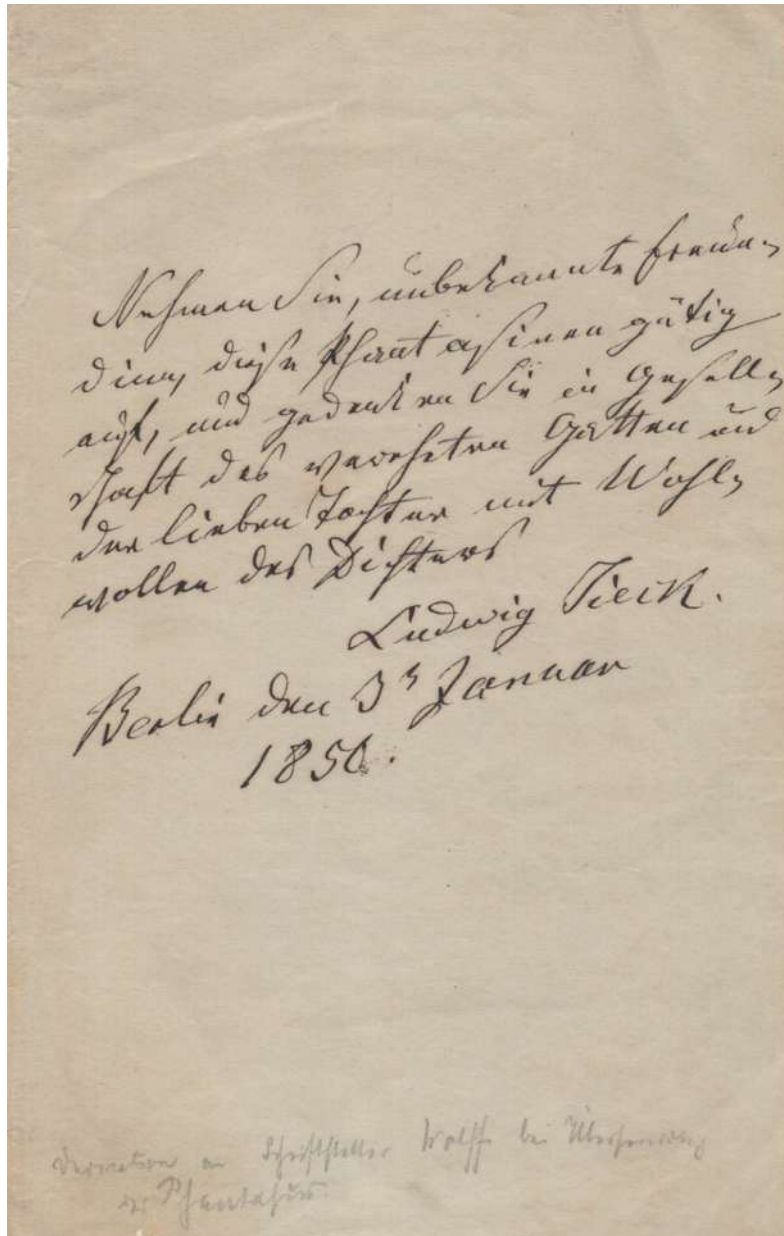 Nehmen Sie, unbekannte Freun-
dinn, diese Phantasieen gütig
auf, und gedenken Sie in Gesell-
schaft des verehrten Gatten und
der lieben Tochter mit Wohl-
wollen des Dichters
Ludwig Tieck.
Berlin den 3t Januar
1850.
an Schriftsteller Wolff bei Übersendung
des Phantasus.